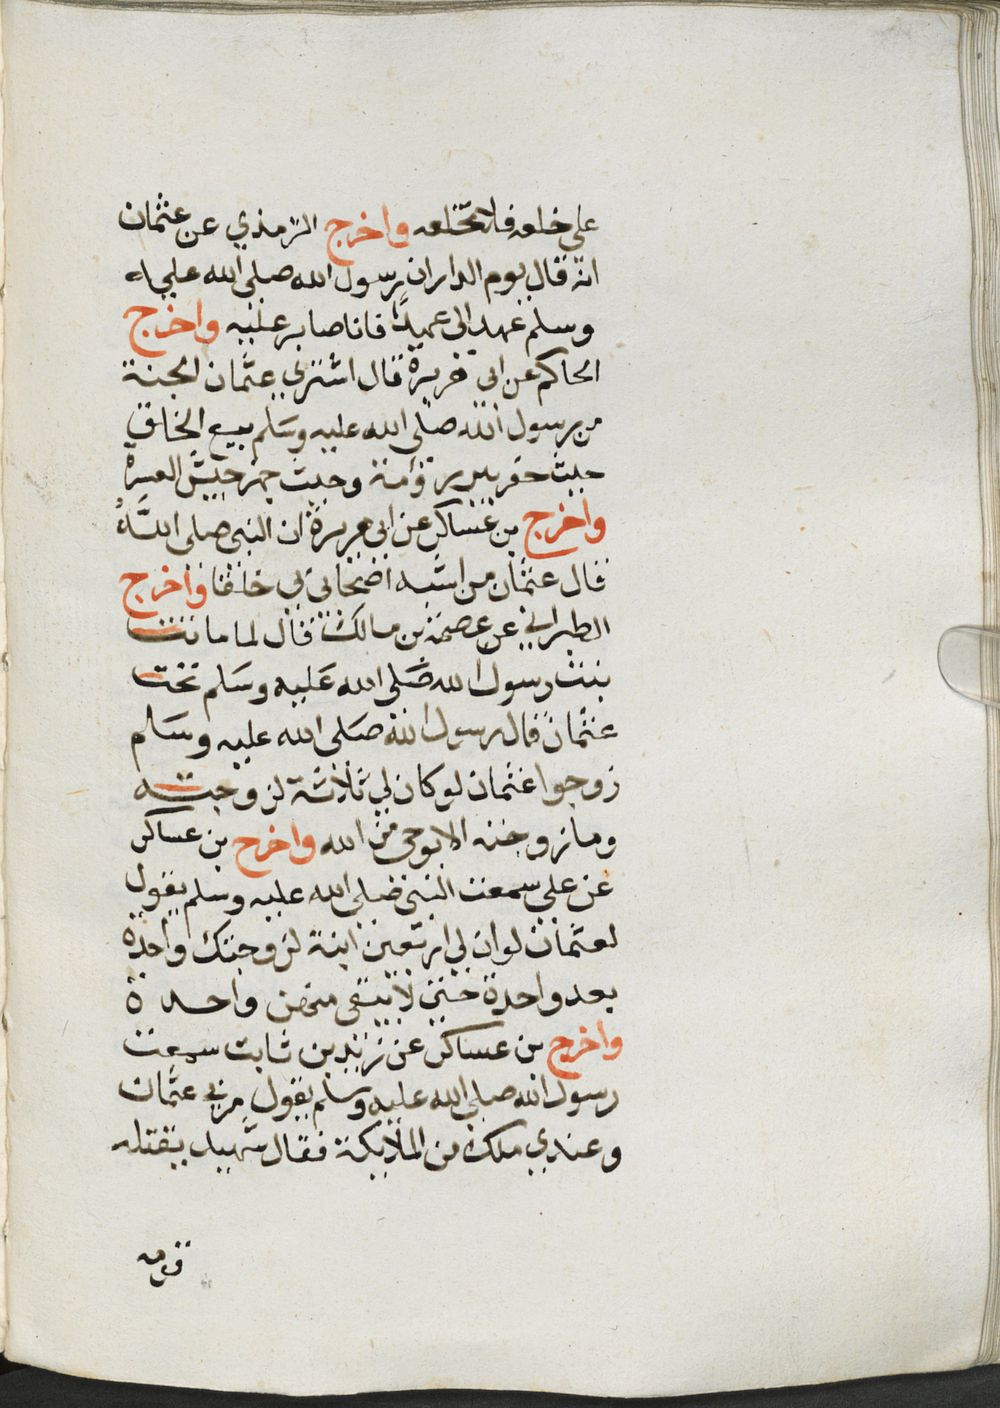 على خلعه فلا تخلعه واخرج الترمذي عن عثمان
انه قال يوم الدار ان رسول الله صلى الله عليه
وسلم عهد الى عهدا فانا صابر عليه واخرج
الحاكم عن ابي هريرة قال اشترى عثمان الجنة
من رسول الله صلى الله عليه وسلم بيع الخلق
حيث حفر بير رومة وحيث جهز جيش العسرة
واخرج بن عساكر عن ابي هريرة ان النبي صلى الله
قال عثمان من اشبه اصحابي بي خلقا واخرج
الطبراني عن عصمة بن مالك قال لما ماتت
بنت رسول الله صلى الله عليه وسلم تحت
عثمان قال رسول الله صلى الله عليه وسلم
زوجوا عثمان لو كان لي ثالثة لزوجته
وما زوجته الا بوحى من الله واخرج بن عساكر
عن على سمعت النبي صلى الله عليه وسلم يقول
لعثمان لو ان لي اربعين ابنة لزوجتك واحدة
بعد واحدة حتى لا يبقى منهن واحدة
واخرج بن عساكر عن زيد بن ثابت سمعت
رسول الله صلى الله عليه وسلم يقول مر بي عثمان
وعندي ملك من الملايكة فقال شهيد يقتله
قومه